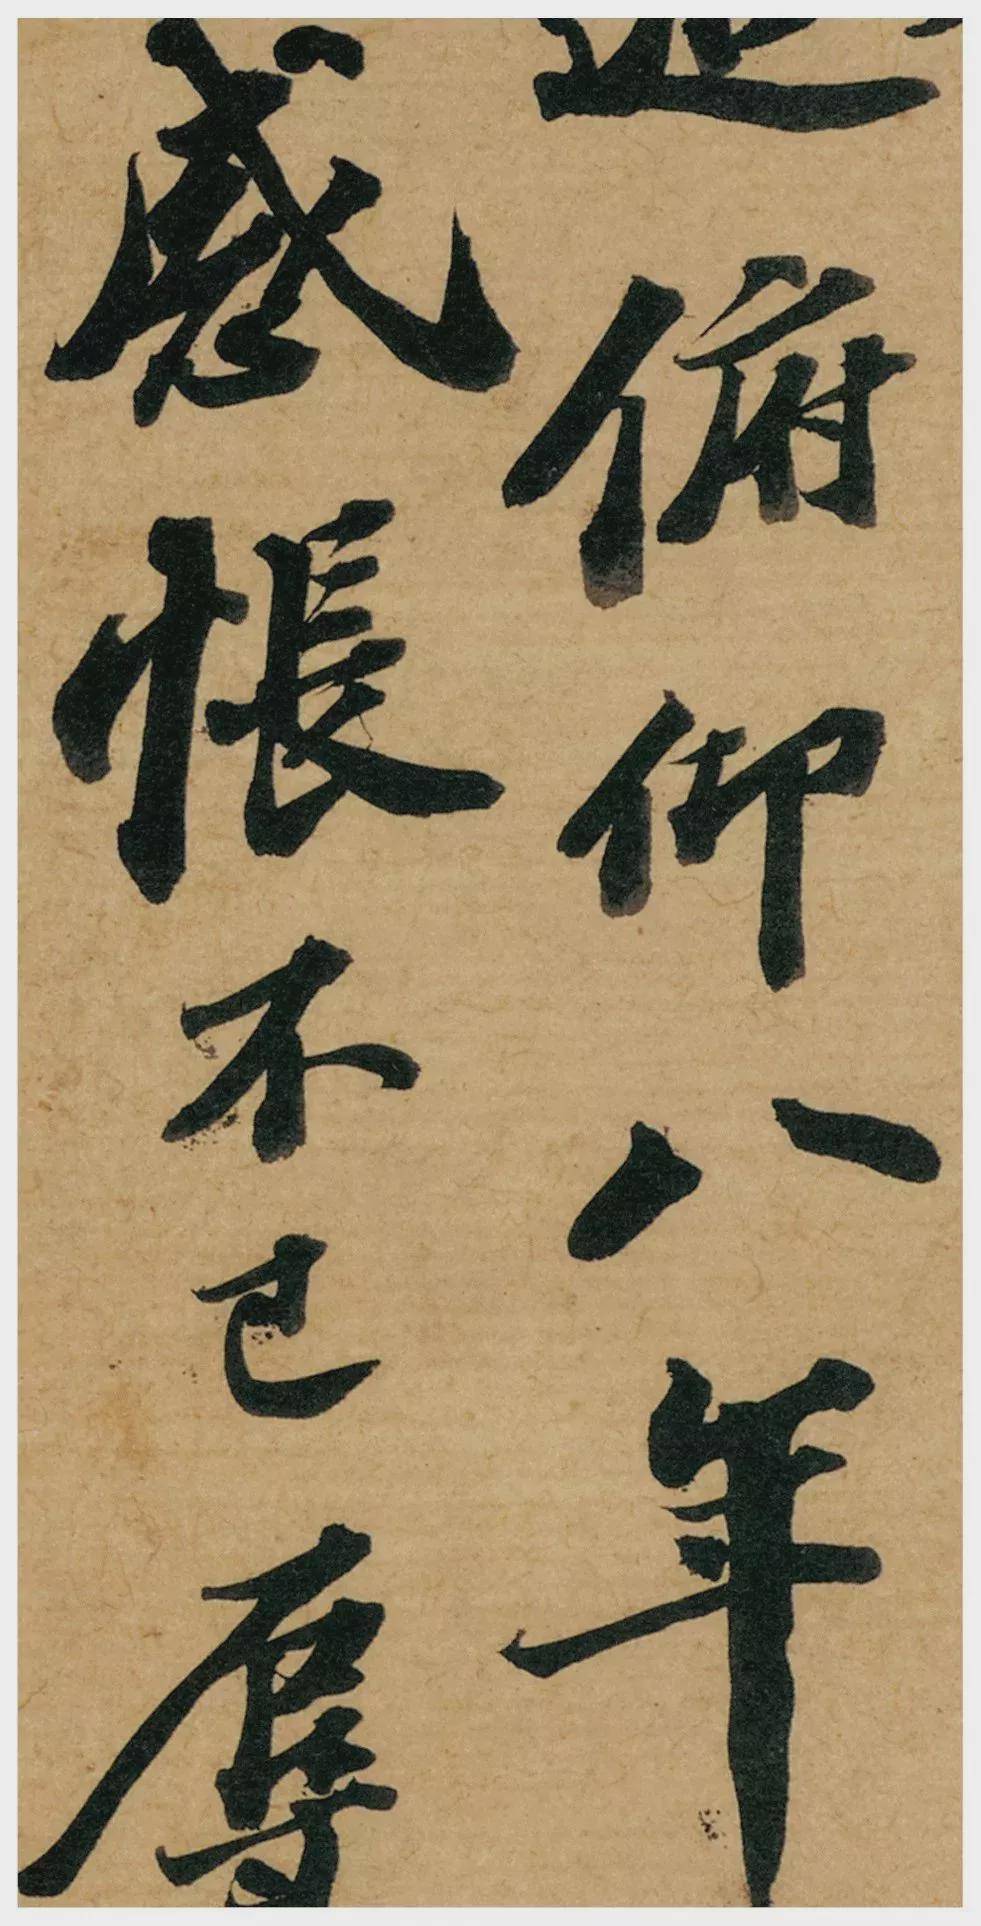 俯仰八年
感悵不已辱